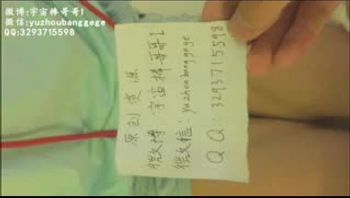 微博:宇宙棒哥哥1
微信:yuzhoubanggege
QQ:3293715598
原创资源
微博:宇宙棒哥哥1
微信:yuzhoubanggege
QQ:3293715598